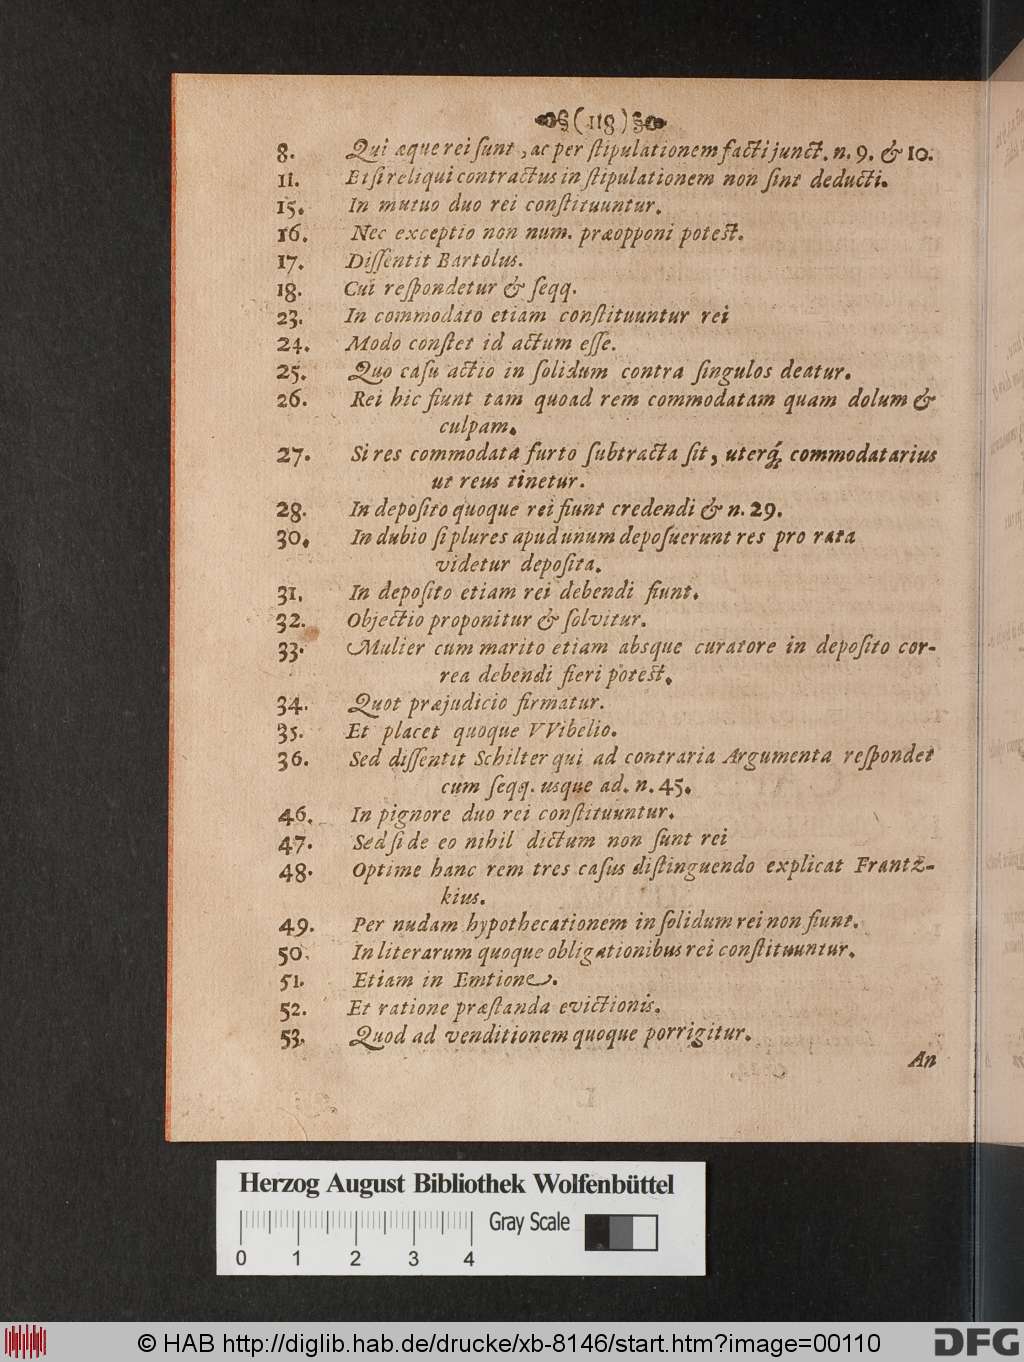 (118)
8. Qui æque rei ſunt, ac per ſtipulationem facti junct. n. 9. & 10.
11. Etſi reliqui contractus in ſtipulationem non ſint deducti.
15. In mutuo duo rei conſtituuntur.
16. Nec exceptio non num. præopponi poteſt.
17. Diſſentit Bartolus.
18. Cui reſpondetur & ſeqq.
23. In commodato etiam conſtituuntur rei
24. Modo conſtet id actum eſſe.
25. Quo caſu actio in ſolidum contra ſingulos deatur.
26. Rei hic fiunt tam quoad rem commodatam quam dolum &
culpam.
27. Si res commodata furto ſubtracta ſit, uterq́; commodatarius
ut reus tinetur.
28. In depoſito quoque rei fiunt credendi & n. 29.
30. In dubio ſi plures apud unum depoſuerunt res pro rata
videtur depoſita.
31. In depoſito etiam rei debendi fiunt.
32. Objectio proponitur & ſolvitur.
33. Mulier cum marito etiam absque curatore in depoſito cor-
rea debendi fieri poteſt.
34. Quot præjudicio firmatur.
35. Et placet quoque VVibelio.
36. Sed diſſentit Schilter qui ad contraria Argumenta reſpondet
cum ſeqq. usque ad. n. 45.
46. In pignore duo rei conſtituuntur.
47. Sed ſi de eo nihil dictum non ſunt rei
48. Optime hanc rem tres caſus diſtinguendo explicat Frantz-
kius.
49. Per nudam hypothecationem in ſolidum rei non fiunt.
50. In literarum quoque obligationibus rei conſtituuntur.
51. Etiam in Emtione.
52. Et ratione præſtanda evictionis.
53. Quod ad venditionem quoque porrigitur.
An
Herzog August Bibliothek Wolfenbüttel
Gray Scale
0 1 2 3 4
© HAB http://diglib.hab.de/drucke/xb-8146/start.htm?image=00110
DFG